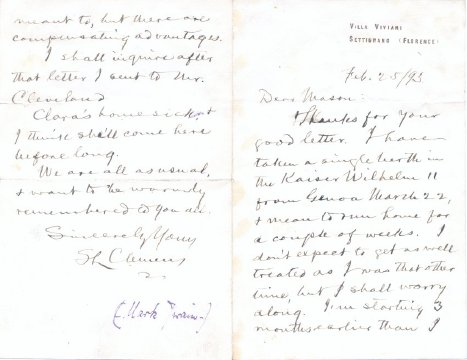 VILLA VIVIANI
SETTIGNANO (FLORENCE)
Feb. 25/93
Dear Mason:
Thanks for your
good letter. I have
taken a single berth in
the Kaiser Wilhelm II
from Genoa March 22,
& mean to run home for
a couple of weeks. I
don't expect to get as well
treated as I was that other
time, but I shall worry
along. I'm starting 3
months earlier than I
meant to, but there are
compensating advantages.
I shall inquire after
that letter I sent to Mr.
Cleveland
Clara's home sick, &
I think she'll come here
before long.
We are all as usual,
& want to be warmly
remembered to you all.
Sincerely Yours
SL Clemens
(Mark Twain)